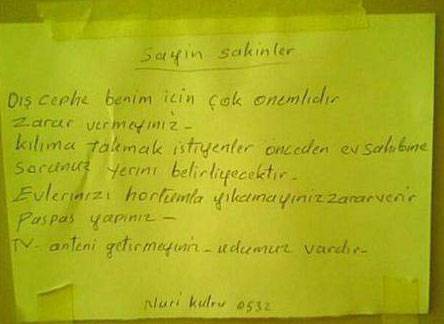 Sayin sakinler
Dış cephe benim için çok onemlidir
Zarar vermeyiniz -
Kılıma takmak istiyenler önceden ev sahibine
sorunuz yerini belirliyecektir -
Evlerinizi hortumla yıkamayınız zarar verir
Paspas yapınız -
TV- anteni getirmeyiniz - udumuz vardır -
Nuri 0532